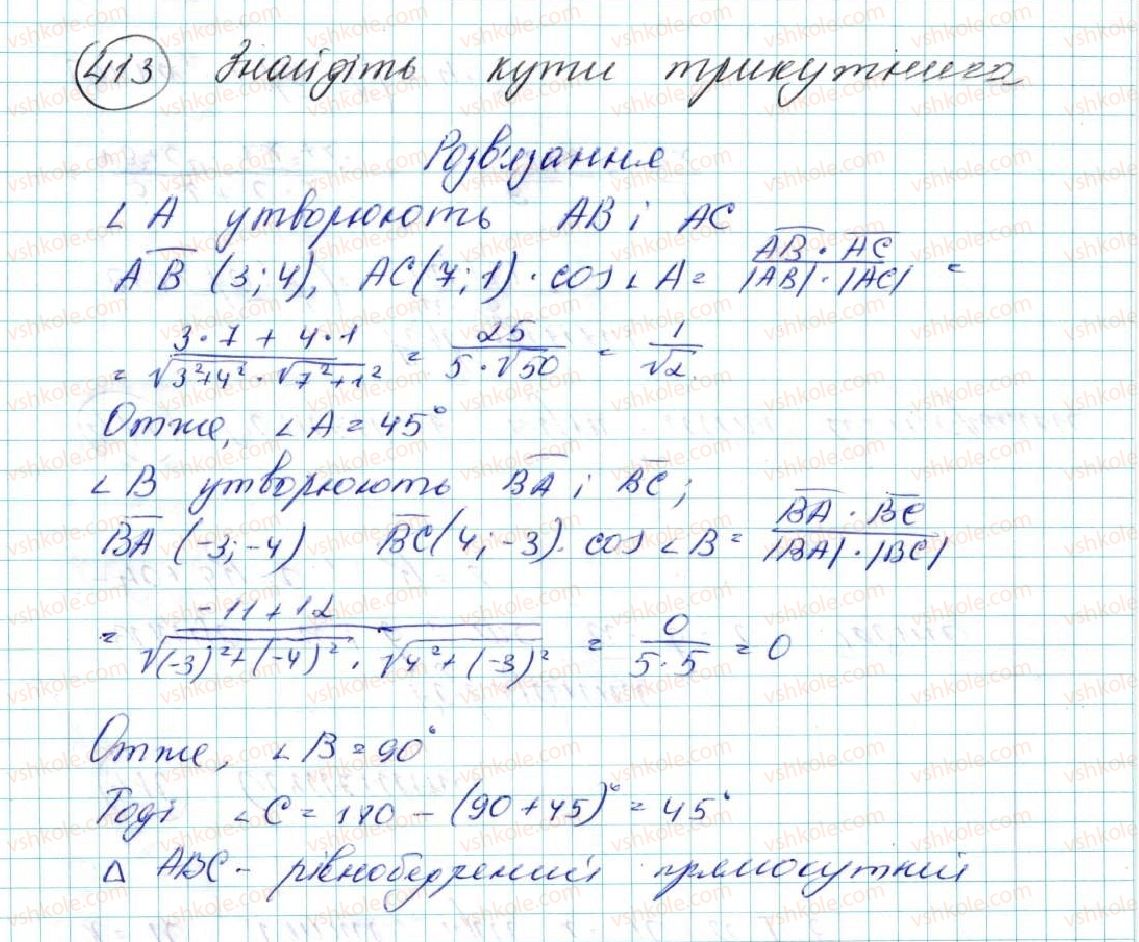 413 Знайдіть кути трикутника
Розв'язання
∠A утворюють AB і AC
AB (3; 4), AC(7; 1) · cos ∠A = AB · AC / |AB| · |AC| =
= 3·7 + 4·1 / √3²+4² · √7²+1² = 25 / 5·√50 = 1 / √2
Отже, ∠A = 45°
∠B утворюють BA і BC;
BA (-3; -4) BC(4; -3). cos ∠B = BA · BC / |BA| · |BC|
= -11+12 / √(-3)²+(-4)² · √4²+(-3)² = 0 / 5·5 = 0
Отже, ∠B = 90°
Тоді ∠C = 180 - (90+45)° = 45°
Δ ABC - рівнобедрений прямокутній